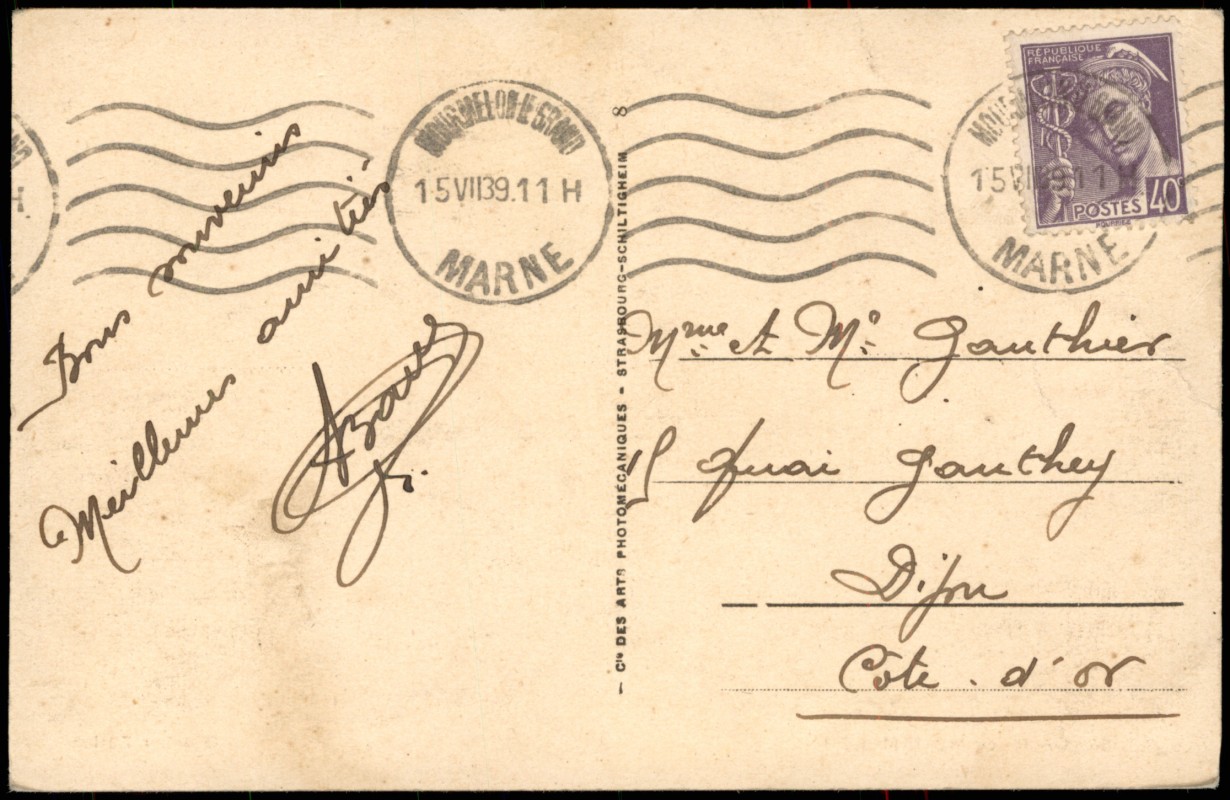 Bons souvenirs
Meilleures amitiés
MOURMELON LE GRAND
15 VII 39. 11 H
MARNE
8
Cie DES ARTS PHOTOMÉCANIQUES - STRASBOURG-SCHILTIGHEIM
RÉPUBLIQUE
FRANÇAISE
POSTES 40c
15 VII 39. 11 H
MARNE
Mme et Mr Gauthier
quai Gauthey
Dijon
Côte. d'or